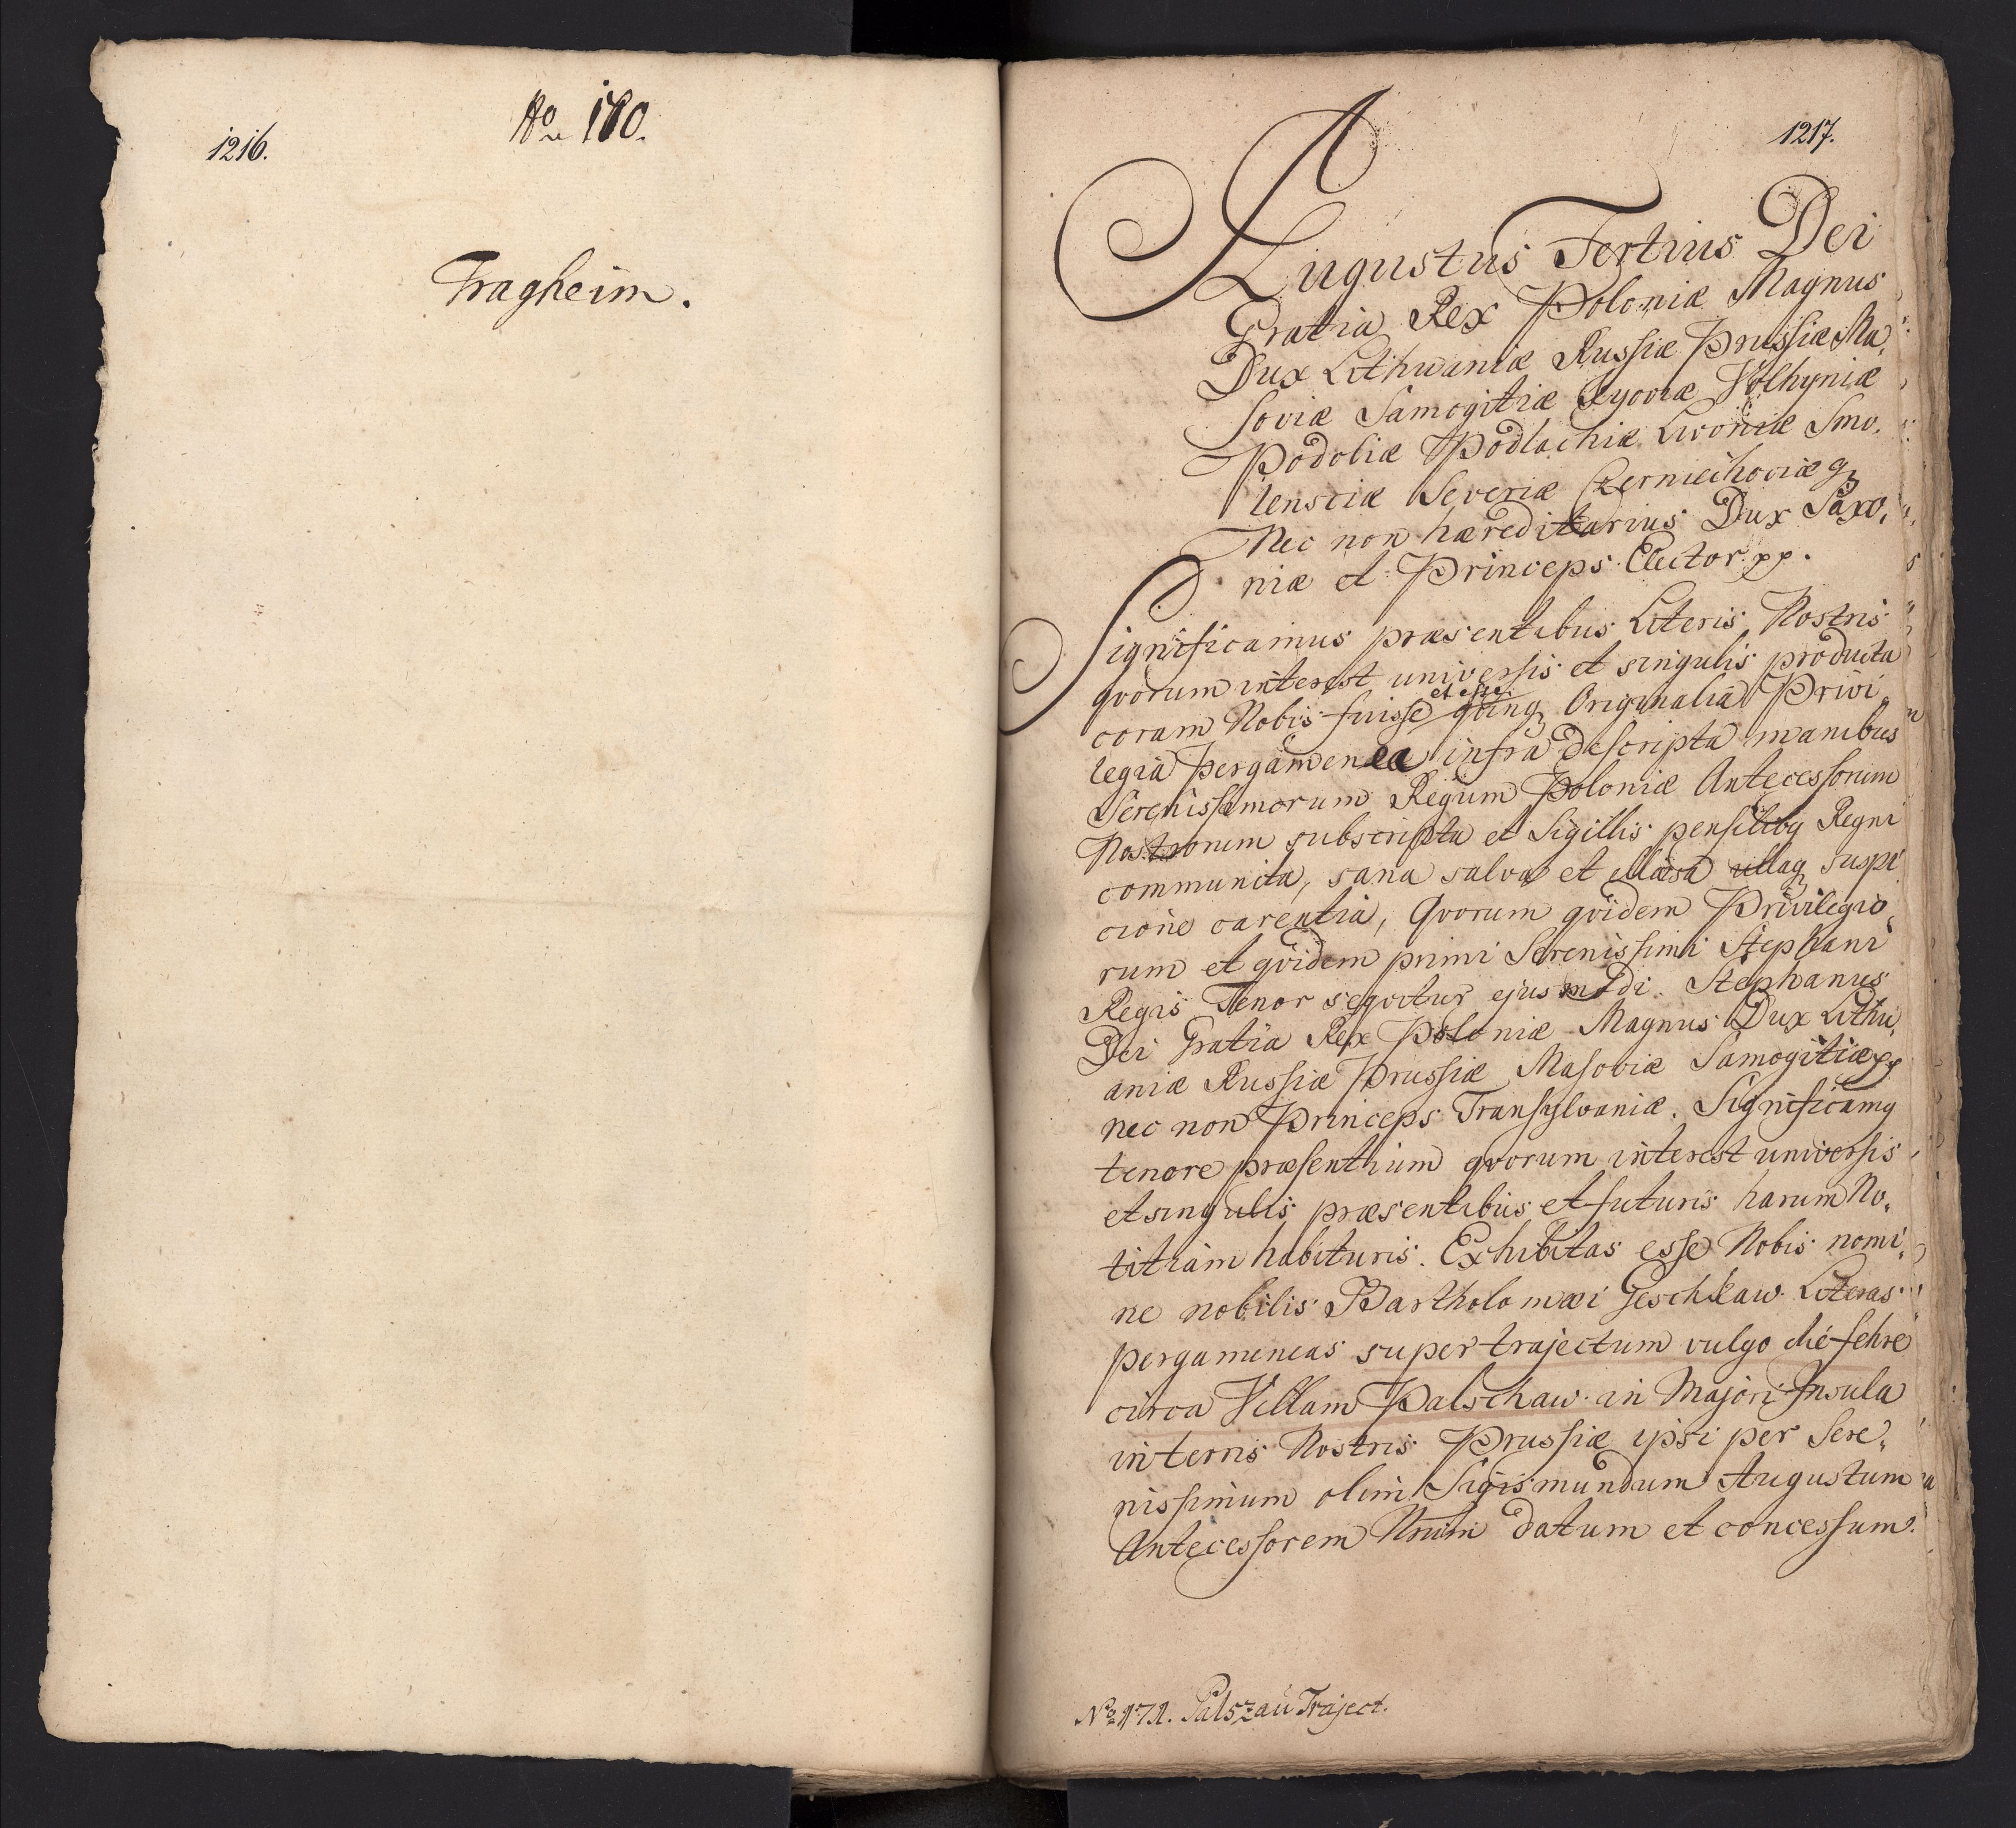 1216.
No 180.
Tragheim.
1217.
Augustus Tertius Dei
Gratia Rex Poloniæ Magnus
Dux Lithwaniæ Russiæ Prussiæ Ma,
soviæ Samogitiæ Kyoviæ Volhyniæ
Podoliæ Podlachiæ Livoniæ Smo,
lensciæ Severiæ Czerniechoviæq
Nec non hæreditarius Dux Saxo,
niæ et Princeps Elector pp.
Significamus præsentibus Literis Nostris
qvorum interest universis et singulis producta
et esse
coram Nobis fuisse qving Originalia Privi,
legia pergamenea infra descripta manibus
Serenissimorum Regum Poloniæ Antecessorum
Nostrorum subscripta et Sigillis pensilibq Regni
communita, sana salva et illæsa ullaq suspi
cione carentia, Qvorum qvidem Privilegio,
rum et qvidem primi Serenissimi Stephani
Regis Tenor seqvitur ejusmodi. Stephanus
Dei Gratia Rex Poloniæ Magnus Dux Lithu,
aniæ Russiæ Prussiæ Masoviæ Samogitiæpp
nec non Princeps Transylvaniæ. Significamq
tenore præsentium qvorum interest universis
et singulis præsentibus et futuris harum No,
titiam habituris. Exhibitas esse Nobis nomi,
ne nobilis Bartholomæi Geschkaw Literas
pergamineas super trajectum vulgo die fehre
circa Villam Palschaw in Majori Insula
in terris Nostris Prussiæ ipsi per Sere,
nissimum olim Sigismundum Augustum
Antecessorem Nrum datum et concessum.
No 171. Palszau Traject.